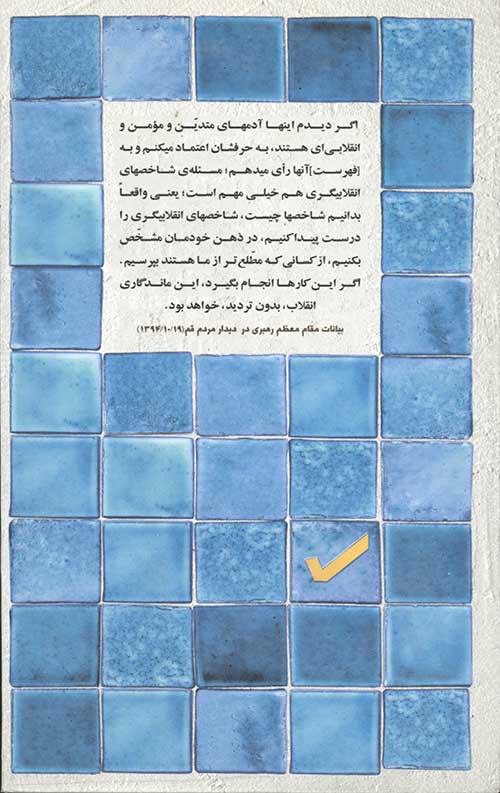 اگـر دیـدم اینهـا آدمهـای متدیّـن و مؤمـن و
انقلابی‌ای هستند، به حرفشان اعتماد میکنم و به
[فهرست]آنها رأی میدهم؛ مسئله‌ی شـاخصهای
انقلابیگری هم خیلی مهم است؛ یعنی واقعـاً
بدانیم شاخصها چیست، شاخصهای انقلابیگری را
درست پیـدا کنیم، در ذهن خودمان مشخّص
بکنیم، از کسانی که مطّلع‌تر از ما هستند بپرسیم.
اگر این کارها انجام بگیرد، این ماندگاری
انقلاب، بدون تردید، خواهد بود.
بیانات مقام معظم رهبری در دیدار مردم قم(۱۳۹۴/۱۰/۱۹)